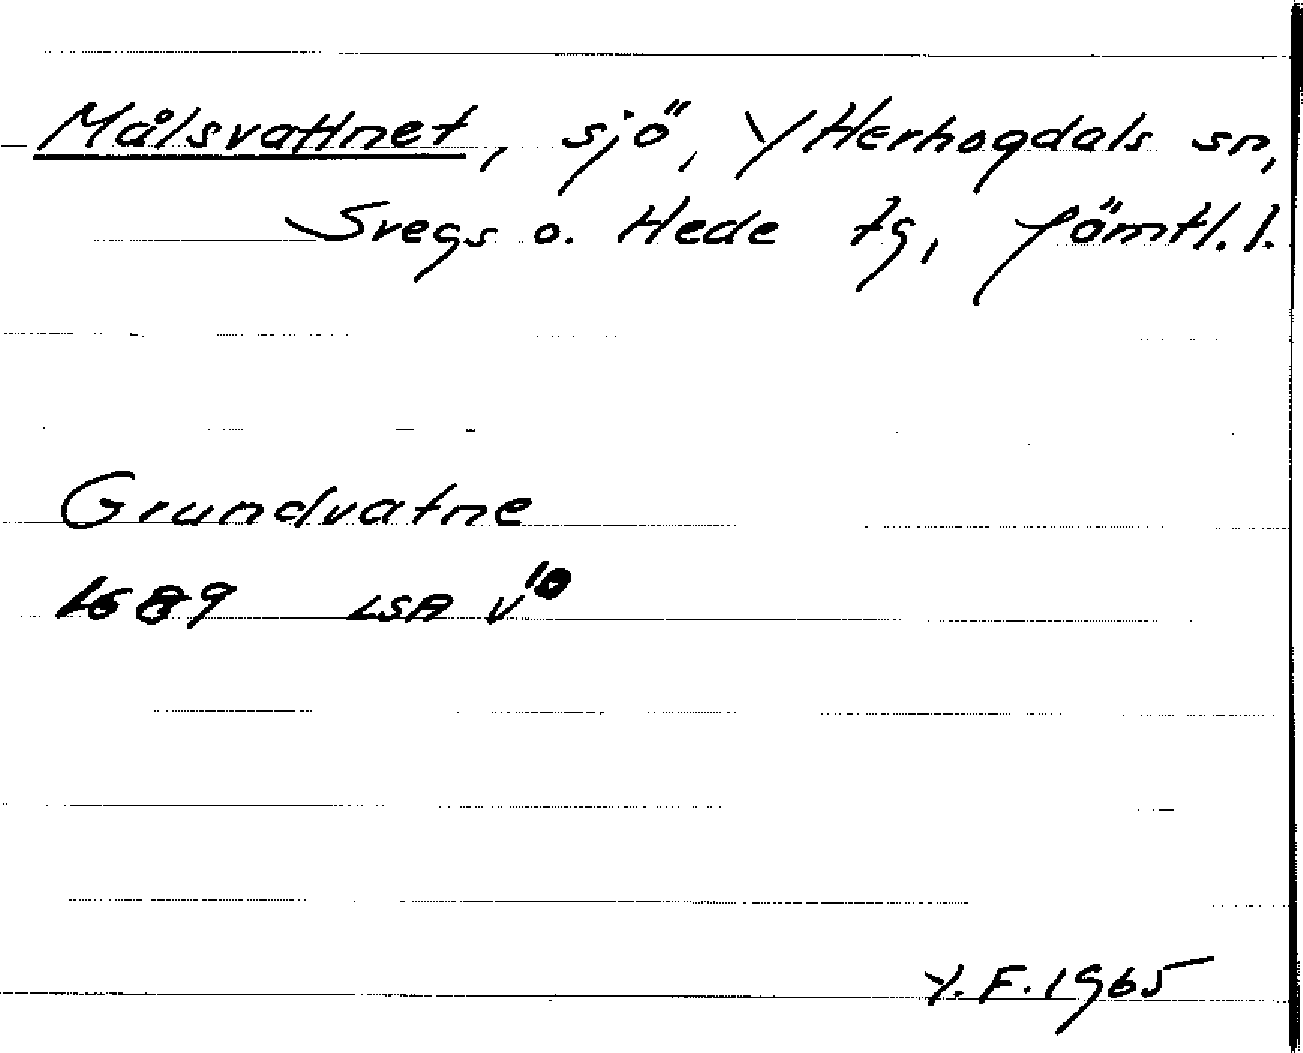 Målsvattnet, sjö, Ytterhogdals sn,
Svegs o. Hede tg, Jämtl. l.
Grundvatne
1689 LSA V10
Y. F. 1965